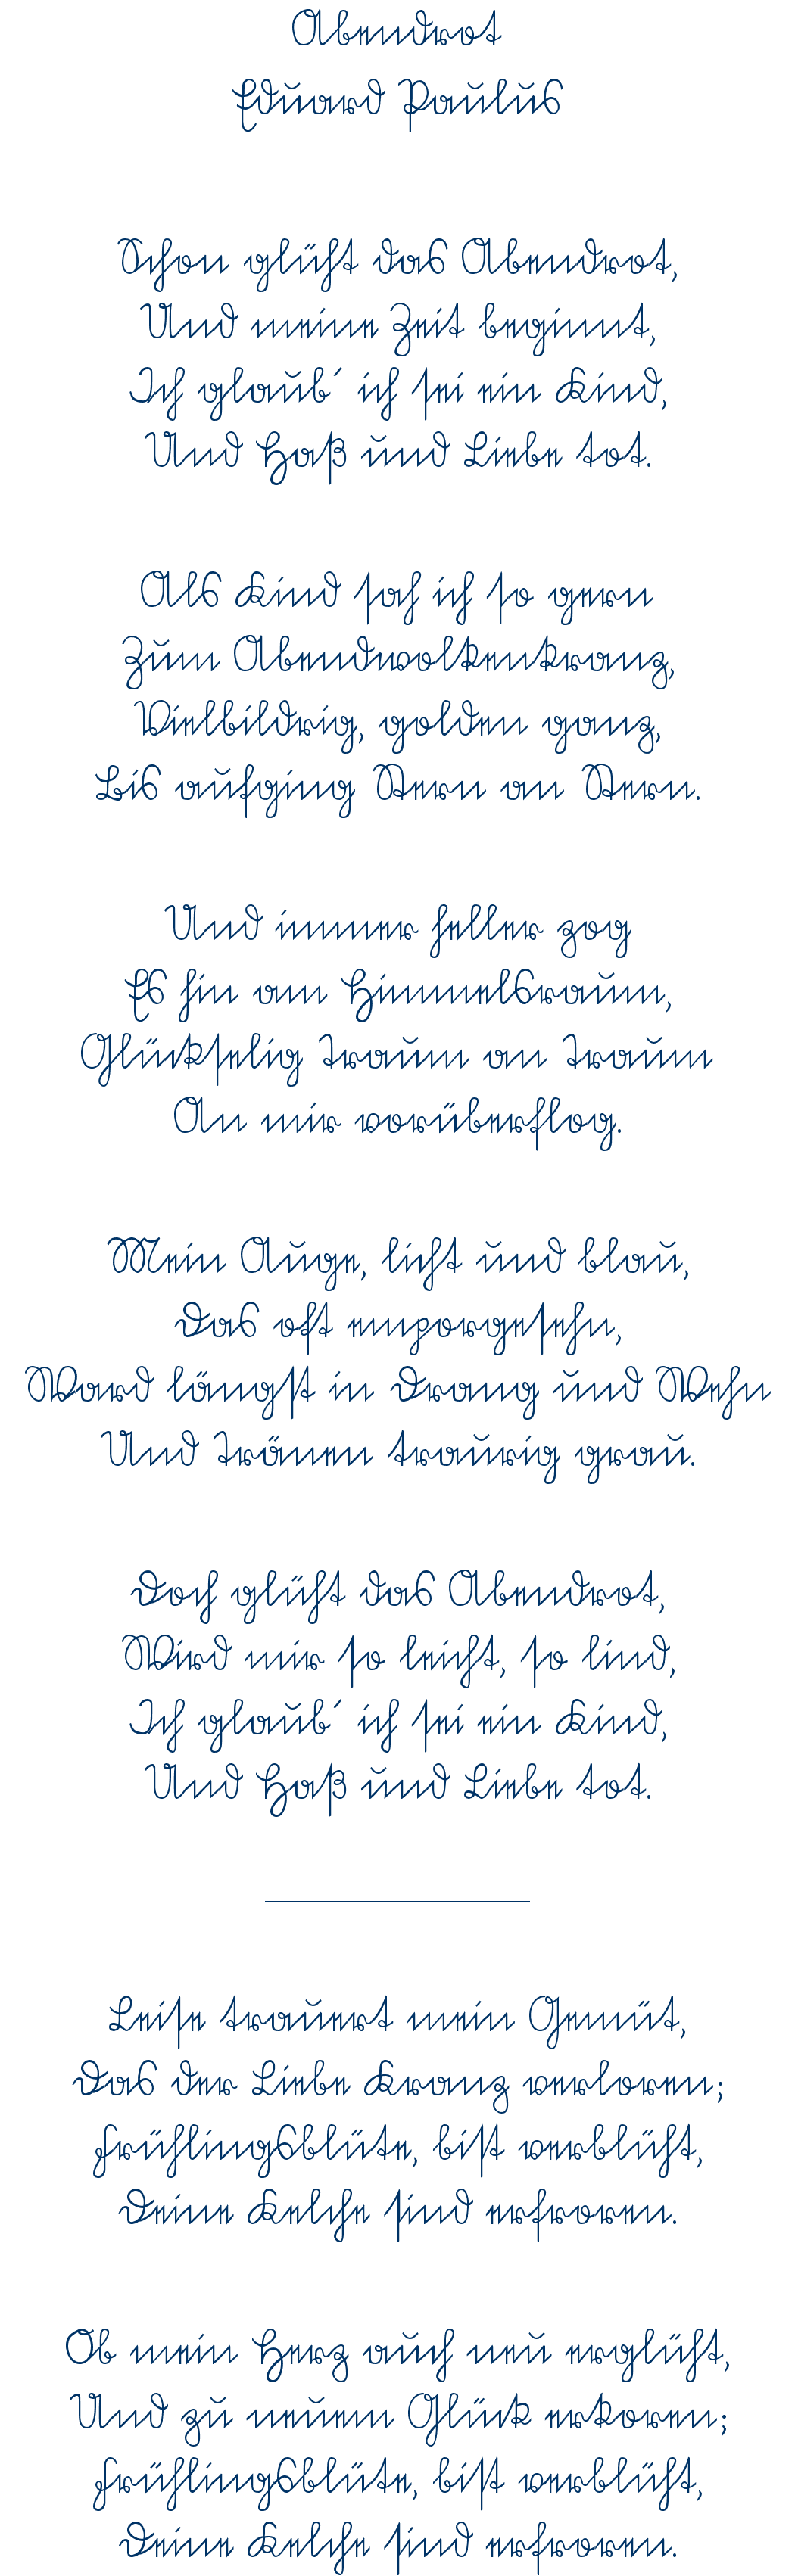 Abendrot
Eduard Paulus
Schon glüht das Abendrot,
Und meine Zeit beginnt,
Ich glaub´ ich sei ein Kind,
Und Haß und Liebe tot.
Als Kind sah ich so gern
Zum Abendwolkenkranz,
Vielbildrig, golden ganz,
Bis aufging Stern an Stern.
Und immer heller zog
Es hin am Himmelsraum,
Glückselig Traum an Traum
An mir vorüberflog.
Mein Auge, licht und blau,
Das oft emporgesehn,
Ward längst in Drang und Wehn
Und Tränen traurig grau.
Doch glüht das Abendrot,
Wird mir so leicht, so lind,
Ich glaub´ ich sei ein Kind,
Und Haß und Liebe tot.
Leise trauert mein Gemüt,
Das der Liebe Kranz verloren;
Frühlingsblüte, bist verblüht,
Deine Kelche sind erfroren.
Ob mein Herz auch neu erglüht,
Und zu neuem Glück erkoren;
Frühlingsblüte, bist verblüht,
Deine Kelche sind erfroren.